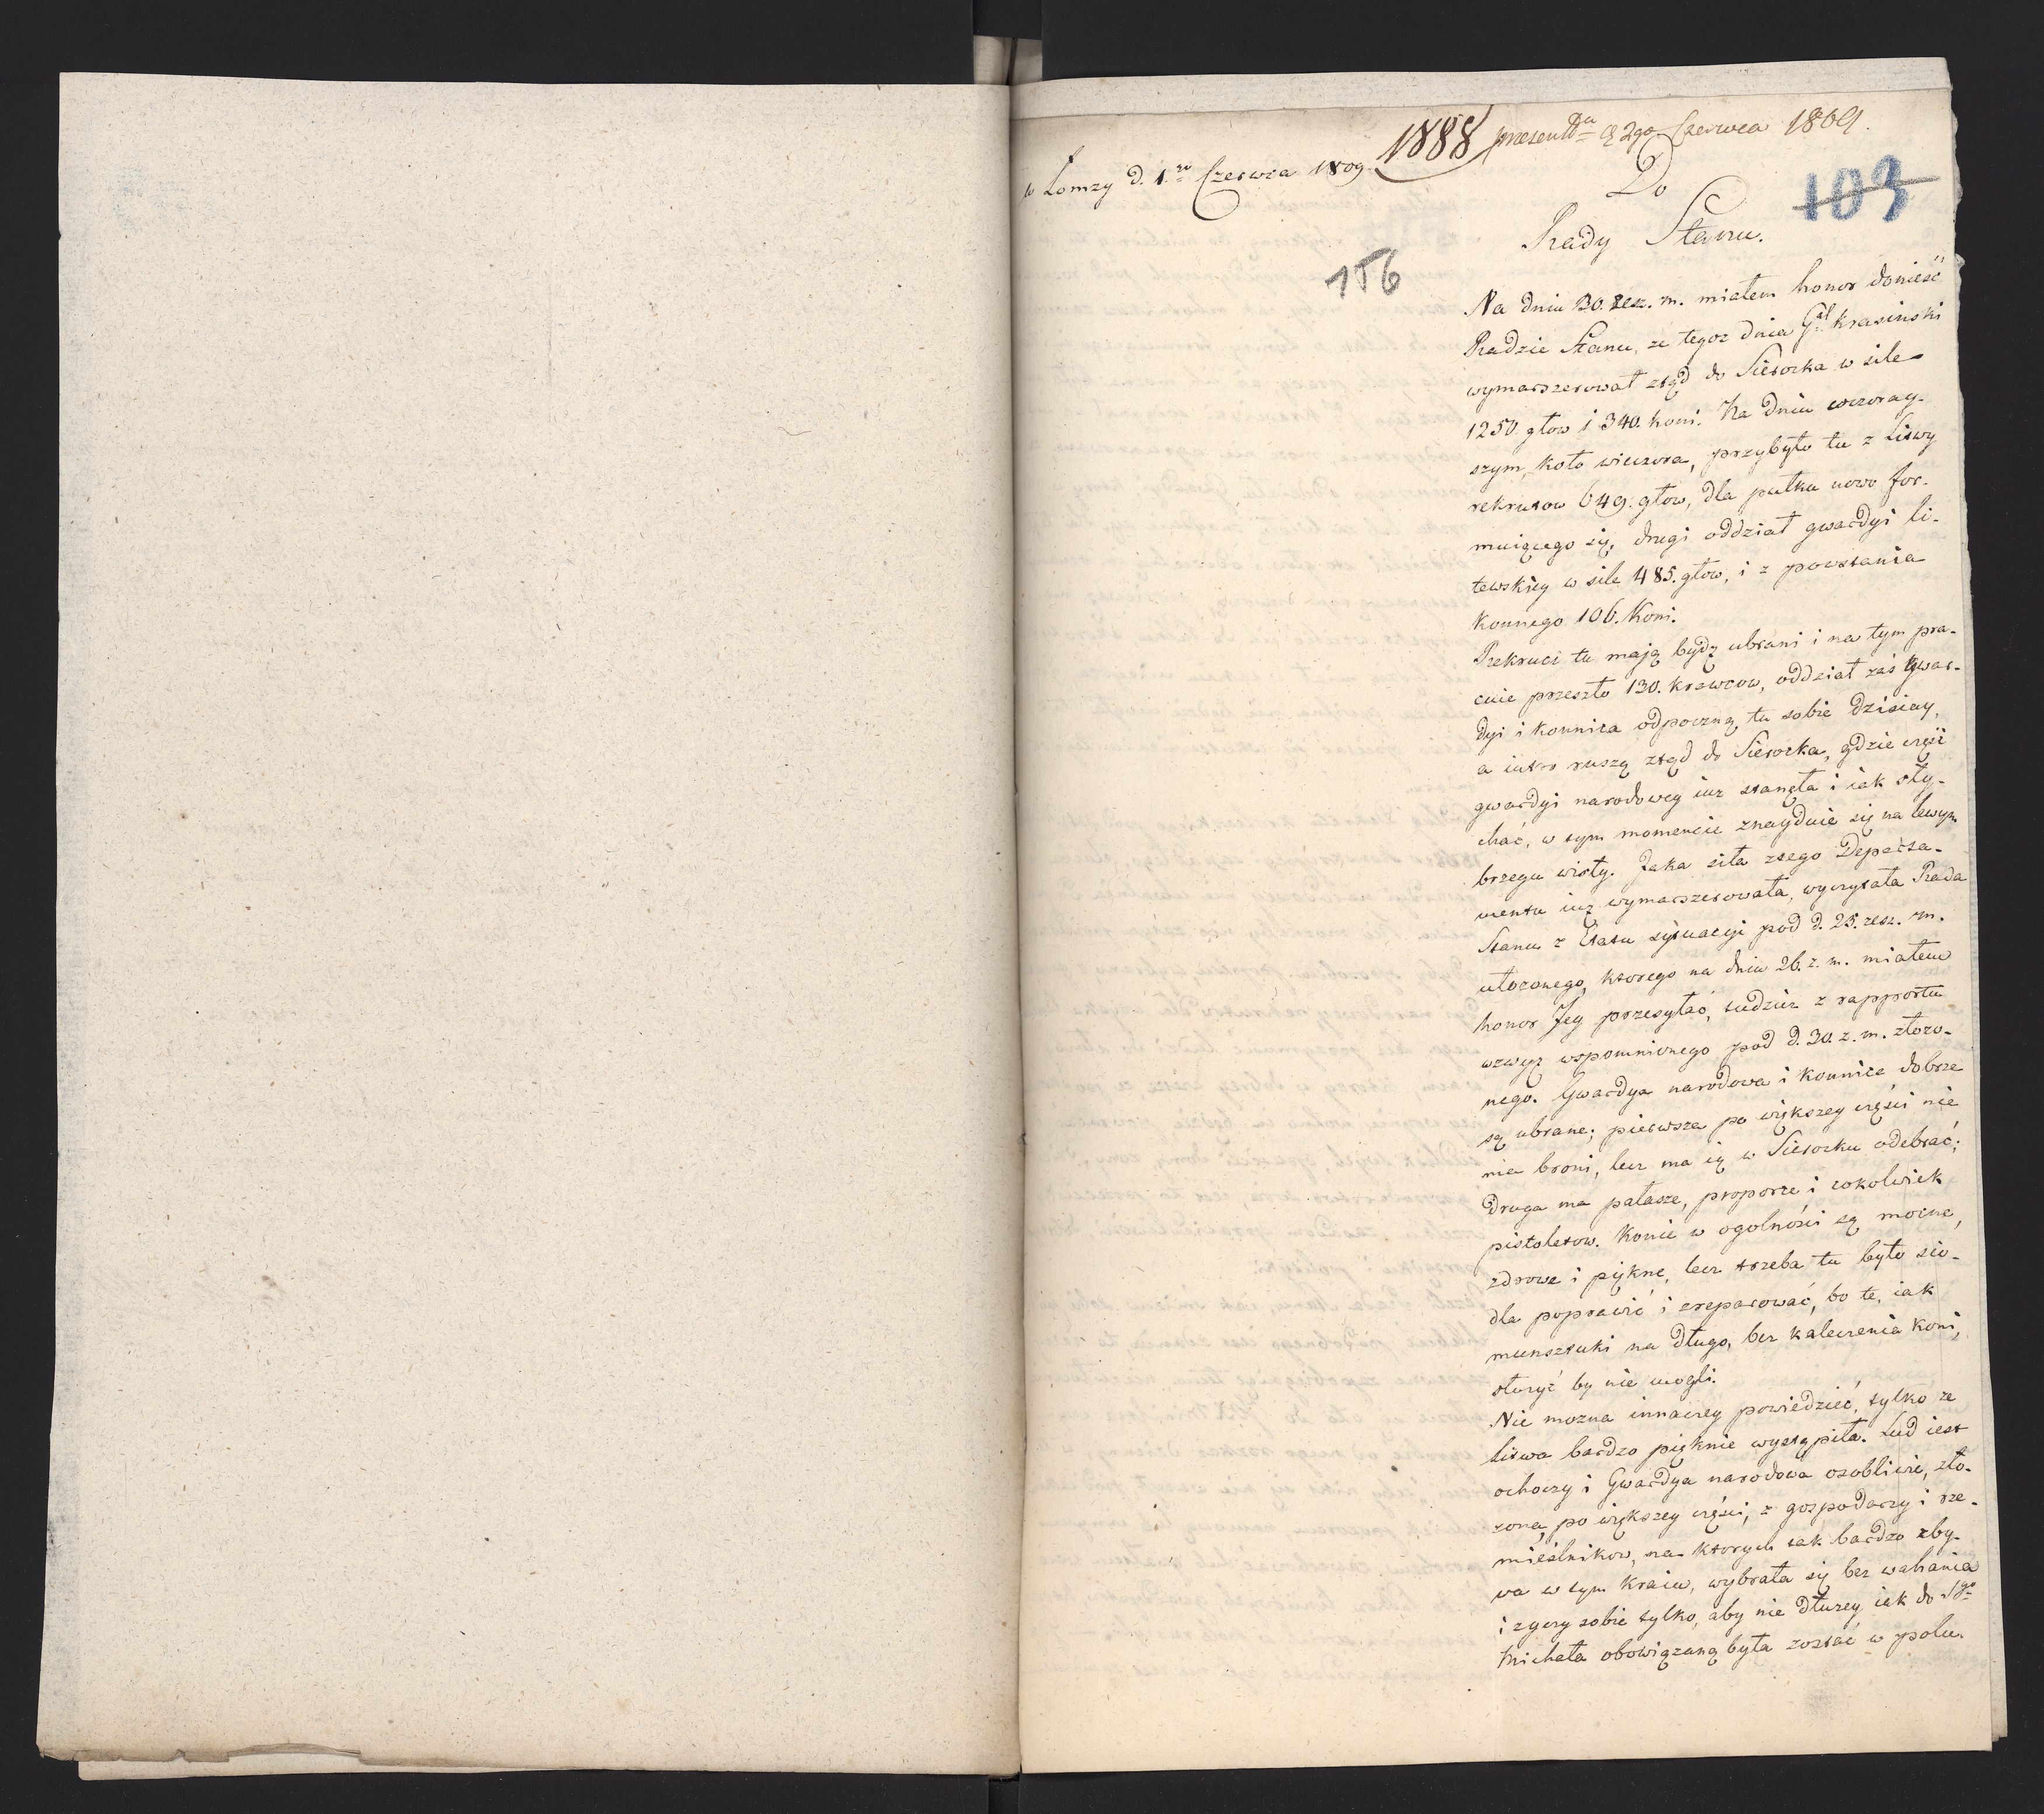 1888
presentt. d 2go Czerwca 1809.
w Łomzy d. 1.go Czerwca 1809.
103
156
Do
Rady Stanu.
Na dniu 30. zesz. m. miałem honor donieść
Radzie Stanu, ze tegoz dnia Gał Krasinski
wymarszerował ztąd do Sierocka w sile
1250. głow i 340. koni. Na dniu wczoray-
szym, koło wieczora, przybyło tu z Litwy
rekrutow 649. głow, dla pułku nowo for-
muiącego się, drugi oddział gwardyi li-
tewskiey w sile 485. głow, i z powstania
konnego 106. Koni.
Rekruci tu mają bydź ubrani i na tym pra-
cuie przeszło 130. krawcow, oddział zaś gwar-
dyi i konnica odpoczną tu sobie dzisiay,
a iutro ruszą ztąd do Sierocka, gdzie część
gwardyi narodowey iuz stanęła i iak sły-
chać, w tym momencie znayduie się na lewym
brzegu wisły. Jaka siła z tego Departa-
mentu iuz wymarszerowała, wyczytała Rada
Stanu z Etatu sytuacyi pod d. 25. zesz. m.
ułozonego, ktorego na dniu 26. z. m. miałem
honor Jey przesyłać, tudziez z rapportu
wzwyz wspomnionego pod d. 30. z. m. złozo-
nego. Gwardya narodowa i konnica dobrze
są ubrane; pierwsza po większey części nie
ma broni, lecz ma ią w Sierocku odebrać;
druga ma pałasze, proporce i cokolwiek
pistoletow. Konie w ogolności są mocne,
zdrowe i piękne, lecz trzeba tu było sio-
dła poprawić i zreparować, bo te, iak
munsztuki na długo, bez kaleczenia koni,
słuzyć by nie mogli.
Nie mozna innaczey powiedzieć, tylko ze
litwa bardzo pięknie wystąpiła. Lud iest
ochoczy i Gwardya narodowa osobliwie, zło-
zona, po większey części, z gospodarzy i rze-
mieślnikow, na ktorych tak bardzo zby-
wa w tym kraiu, wybrała się bez wahania
i zyczy sobie tylko, aby nie dłuzey iak do Sgo
Michała obowiązaną była zostać w polu.